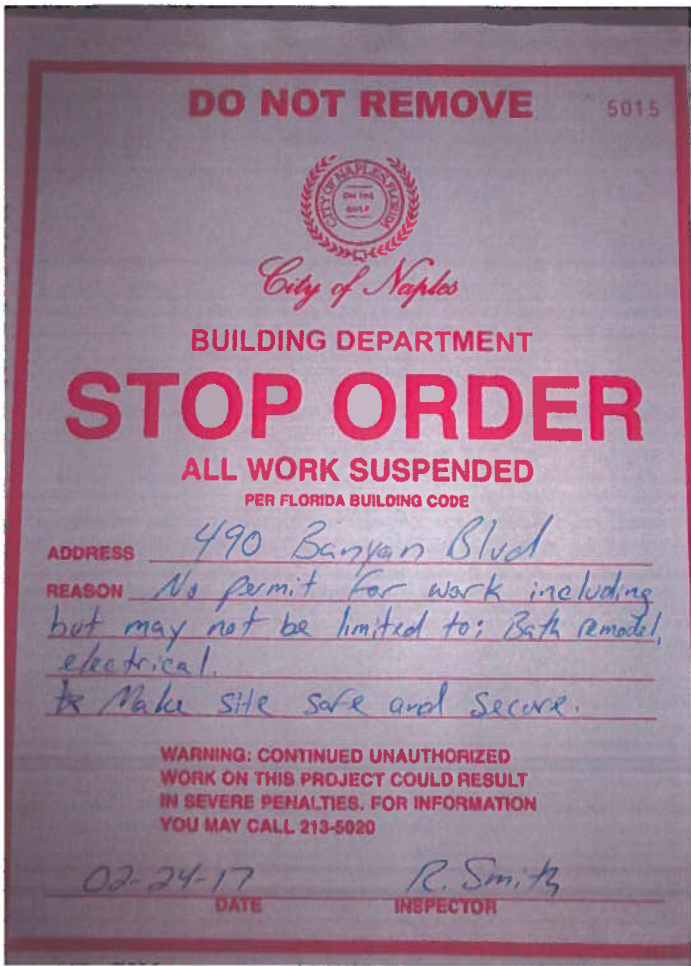 DO NOT REMOVE 5015
CITY OF NAPLES, FLORIDA
ON THE
GULF
City of Naples
BUILDING DEPARTMENT
STOP ORDER
ALL WORK SUSPENDED
PER FLORIDA BUILDING CODE
ADDRESS 490 Banyan Blvd
REASON No permit for work including
but may not be limited to: Bath remodel,
electrical.
* Make site safe and secure.
WARNING: CONTINUED UNAUTHORIZED
WORK ON THIS PROJECT COULD RESULT
IN SEVERE PENALTIES. FOR INFORMATION
YOU MAY CALL 213-5020
02-24-17 R. Smith
DATE INSPECTOR